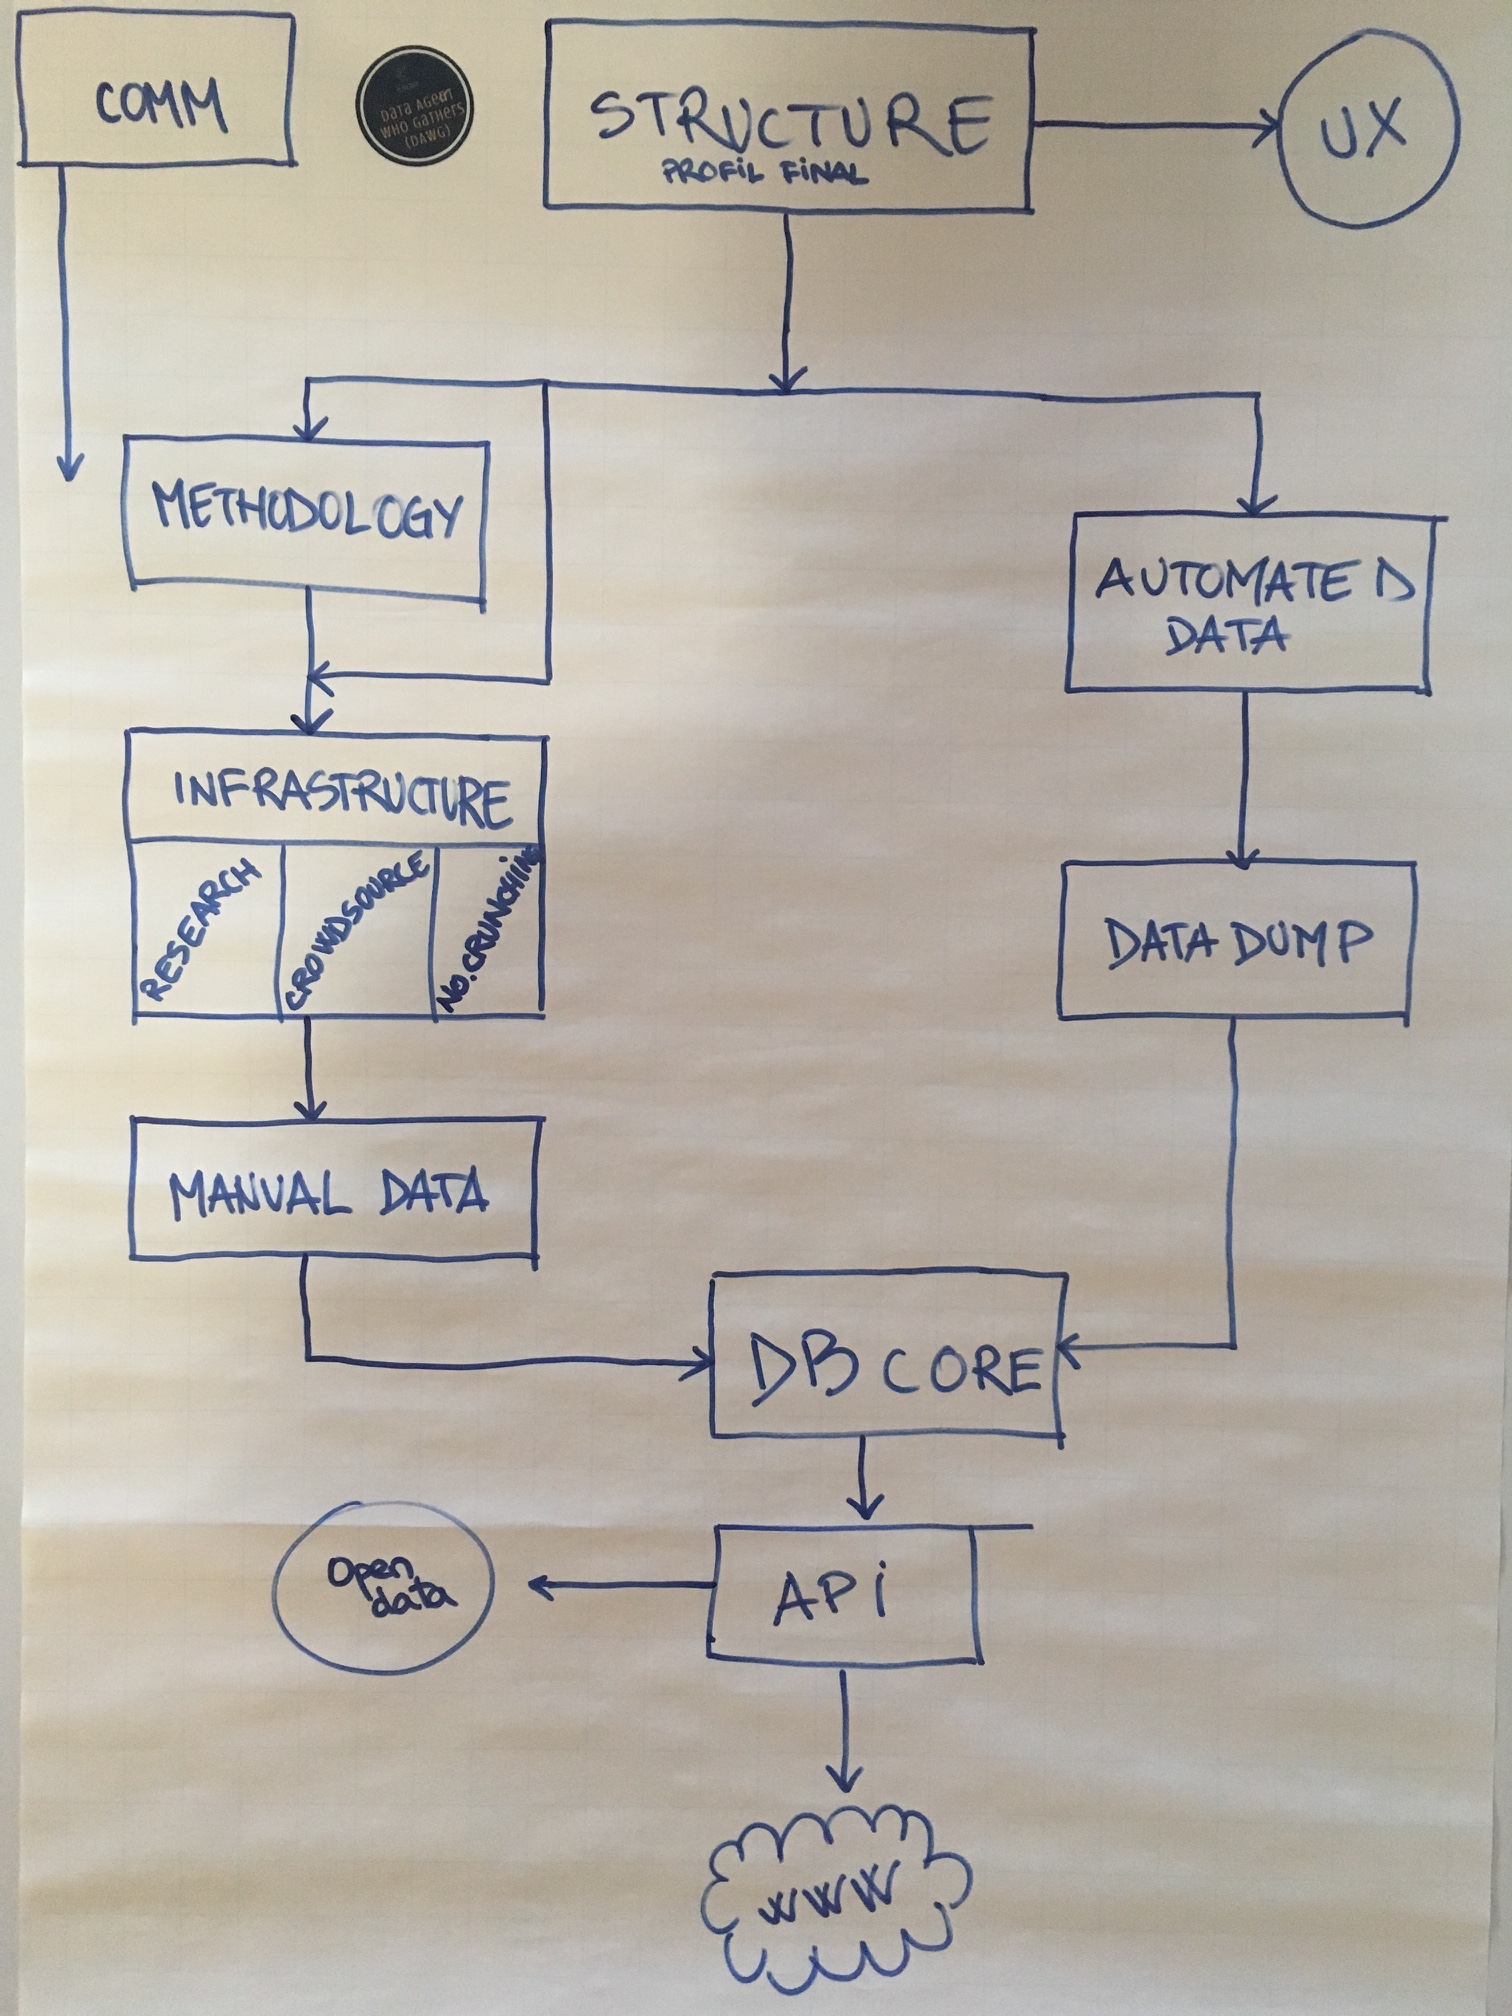 COMM
Data Agent
WHO Gathers
(DAWG)
STRUCTURE
PROFiL FiNAL
UX
METHODOLOGY
AUTOMATED
DATA
INFRASTRUCTURE
RESEARCH
CROWDSOURCE
NO.CRUNCHiNG
DATA DUMP
MANUAL DATA
DB CORE
Open
data
APi
WWW